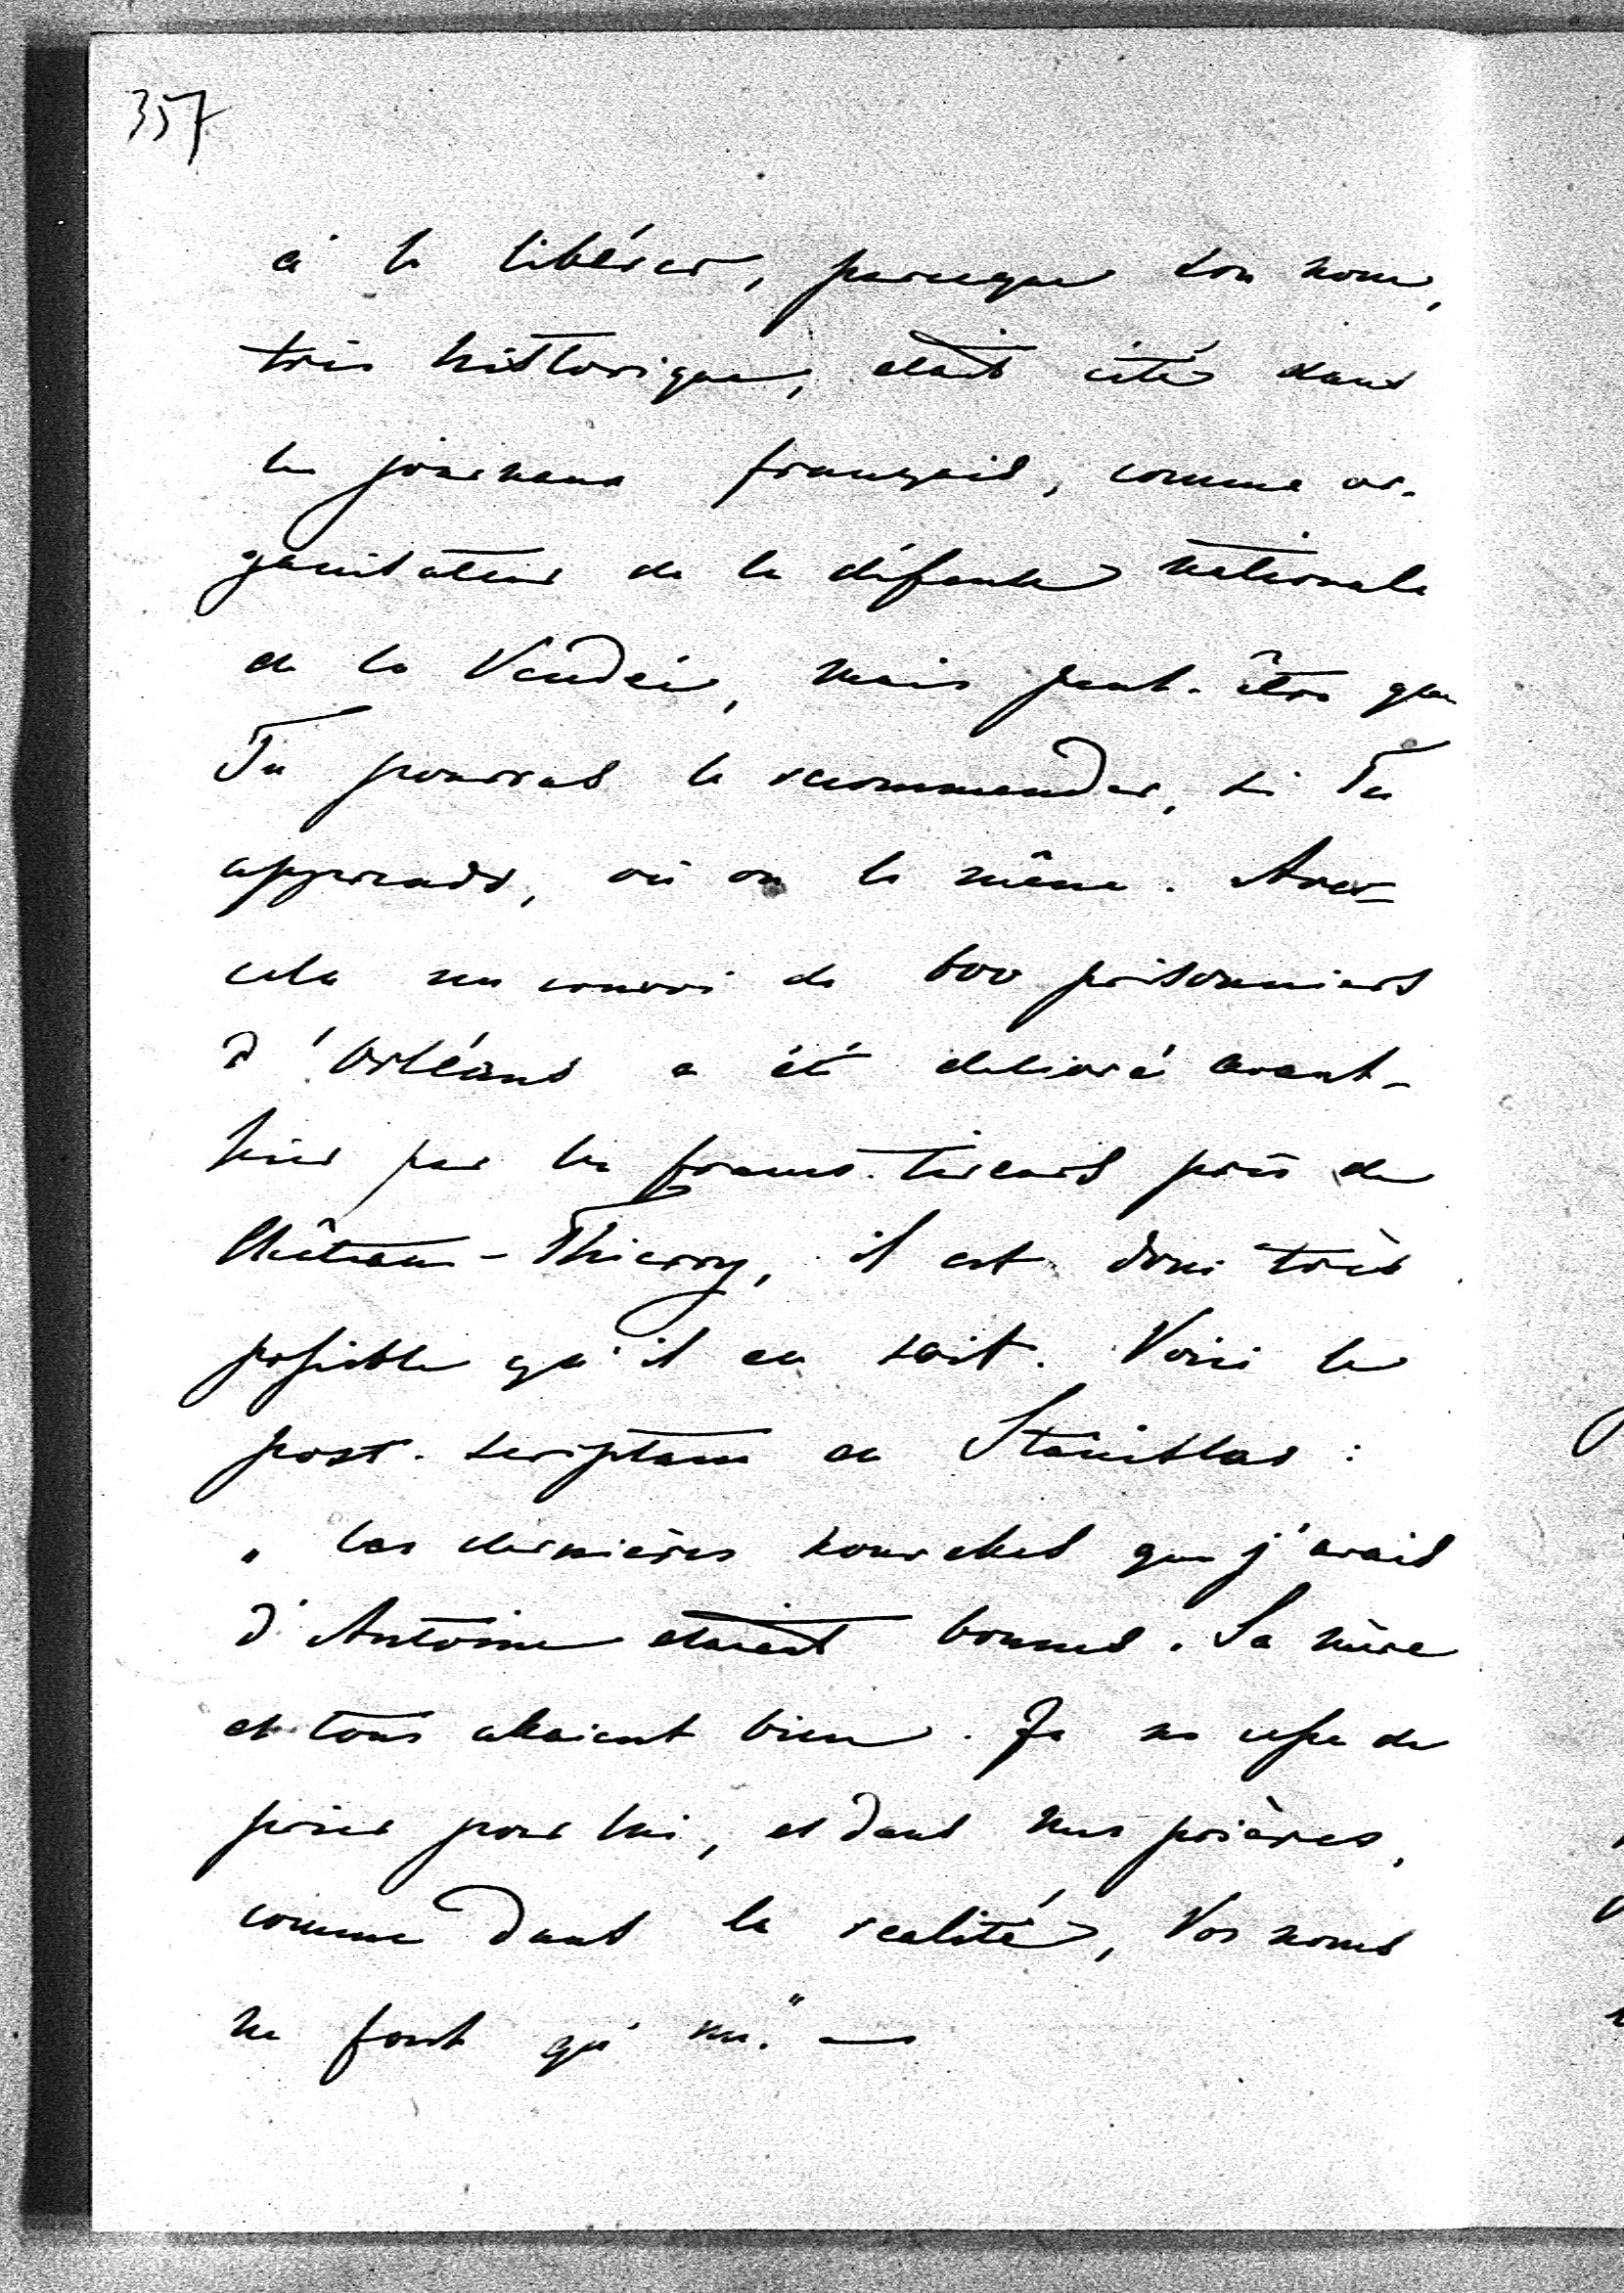 357
à le libérer, parceque son nom,
très historique, était cité dans
les journaux français, comme or-
ganisateur de la défense nationale
de la Vendée, mais peut-être que
Tu pourras le recommander, si Tu
apprends, où on le mène. Avec
cela un convoi de 600 prisonniers
d'Orléans a été delivré avant-
hier par les francs-tireurs près de
Château-Thierry, il est donc très
possible qu'il en soit. Voici le
post-scriptum de Stanislas:
"Les dernières nouvelles que j'avais
d'Antoine étaient bonnes. Sa mère
et tous allaient bien. Je ne cesse de
prier pour lui, et dans mes prières,
comme dans la realité, Vos noms
ne font qu'un." —